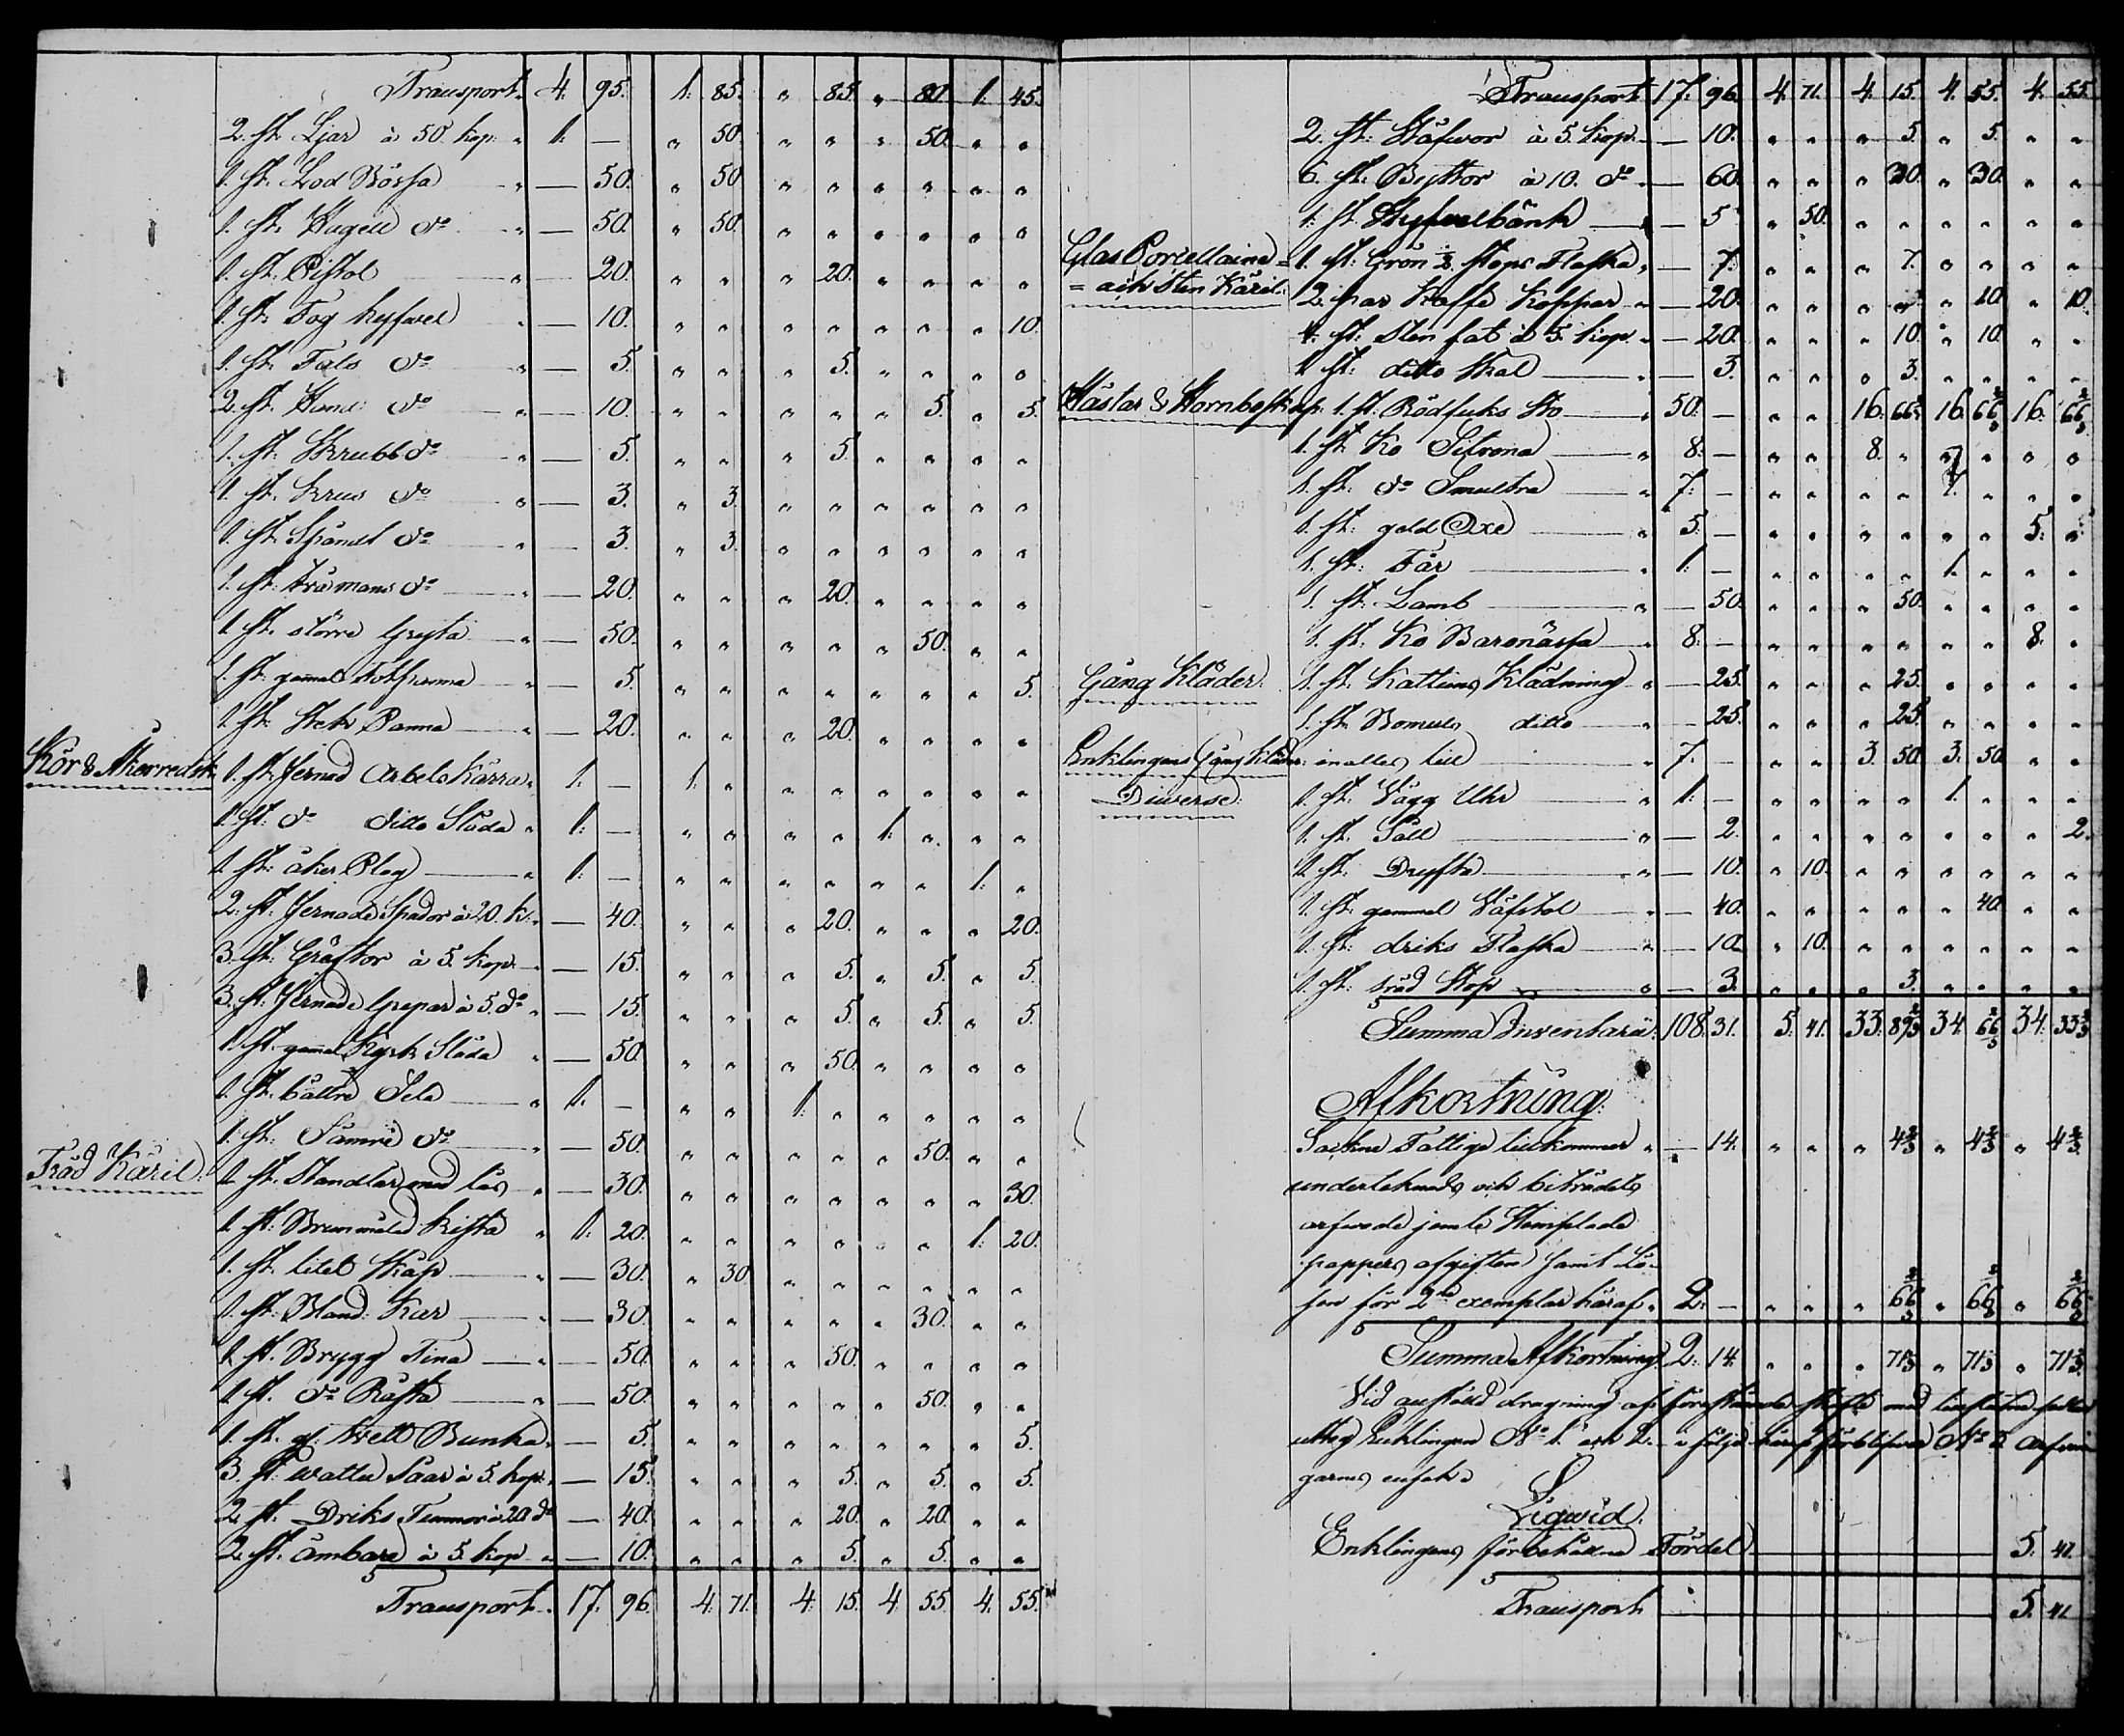 Transport. 4. 95. 1. 85. " 85. " 80. 1. 45.
2. st. Ljar à 50. kop. " 1. — " 50. " " " 50. " "
1. st. Lod Bössa " — 50. " 50. " " " " " "
1. st. Hagel do " — 50. " 50. " " " " " "
1. st. Pistol " — 20. " " " 20. " " " "
1. st. Fog hyfwel " — 10. " " " " " " " 10.
1. st. Fals do " — 5. " " " 5. " " " "
2. st. Hand do " — 10. " " " " " 5. " 5.
1. st. Skrubb do " — 5. " " " 5. " " " "
1. st. Krus do " — 3. " 3. " " " " " "
1. st. Spåndt do " — 3. " 3. " " " " " "
1. st. tråmans do " — 20. " " " 20. " " " "
1. st. större Gryta " — 50. " " " " " 50. " "
1. st. gamal " — 5. " " " " " " " 5.
1. st. Stek Panna " — 20. " " " 20. " " " "
Kör & Åkerredsk. 1. st. Jernad Arbets Kärra " 1. — 1. " " " " " " "
1. st. do ditto Släda " 1. — " " " " 1. " " "
1. st. åker Plog " 1. — " " " " " " 1. "
2. st. Jernade Spador à 20. k. — 40. " " " 20. " " " 20.
3. st. Gräftor à 5. kop. " — 15. " " " 5. " 5. " 5.
3. st. Jernade Grepar à 5. do " — 15. " " " 5. " 5. " 5.
1. st. gamal Kyrk Släda " — 50. " " " 50. " " " "
1. st. bättre Sela " 1. — " " 1. " " " " "
1. st. Sämre do " — 50. " " " " " 50. " "
Träd Käril. 1. st. Handlar med lås " — 30. " " " " " " " 30.
1. st. Brunmålad Kista " 1. 20. " " " " " " 1. 20.
1. st. litet Skåp " — 30. " 30. " " " " " "
1. st. Bland Kar " — 30. " " " " " 30. " "
1. st. Brygg Tina " — 50. " " " 50. " " " "
1. st. do Råsta " — 50. " " " " " 50. " "
1. st. gl. twett Bunka " — 5. " " " " " " " 5.
3. st. watten Saar à 5. kop. " — 15. " " " 5. " 5. " 5.
2. st. Driks Tunnor à 20. do — 40. " " " 20. " 20. " "
2. st. ämbare à 5. kop " — 10. " " " 5. " 5. " "
Transport. 17. 96. 4. 71. 4. 15. 4. 55. 4. 55.
Transport 17. 96. 4. 71. 4. 15. 4. 55. 4. 55.
2. st. Stäfwor à 5. Kop. — 10. " " " 5. " 5. " "
6. st. Byttor à 10. do — 60. " " " 30. " 30. " "
1. st. Hyfwelbänk — 5" " 50. " " " " " "
Glas Porcellaine = 1. st. Grön 2. Stops Flaska " — 7. " " " 7. " " " "
= och Sten Käril. 2. par Kaffe Koppar " — 20. " " " " " 10. " 10.
4. st. Sten fat à 5. kop. " — 20. " " " 10. " 10. " "
1. st. ditto Skål " — 3. " " " 3. " " " "
Hästar & Hornboskap. 1. st. Rödfuks Sto " 50. — " " 16. 66⅔ 16. 66⅔ 16. 66⅔
1. st. Ko Sitrona " 8. — " " 8. " " " " "
1. st. do Smultra " 7. — " " " " 7. " " "
1. st. geld Oxe " 5. — " " " " " " 5. "
1. st. Får " 1. — " " " " 1. " " "
1. st. Lamb " — 50. " " " 50. " " " "
1. st. Ko Baronässa " 8. — " " " " " " 8. "
Gång Kläder. 1. st. Kattuns Klädning " — 25. " " " 25. " " " "
1. st. Bomuls ditto — 25. " " " 25. " " " "
Enklingens Gång Kläder: inalles till " 7. — " " 3. 50. 3. 50. " "
Diverse. 1. st. Vägg Uhr " 1. — " " " " 1. " " "
1. st. Såll " — 2. " " " " " " " 2.
1. st. Dryfta " — 10. " 10. " " " " " "
1. st. gammal Väfstol " — 40. " " " " " 40. " "
1. st. driks Flaska " — 10. " 10. " " " " " "
1. st. träd Stop " — 3. " " " 3. " " " "
Summa Inventarii. 108. 31. 5. 41. 33. 89⅔ 34. 66⅔ 34. 33⅔
Afkortning.
Sockne Fattige tillkommer " — 14. " " " 4⅔ " 4⅔ " 4⅔
underteknads och biträdets
arfwode jemte Stemplade
pappers afgiften samt Lö-
sen för 2ne exemplar häraf " 2. — " " " 66⅔ " 66⅔ " 66⅔
Summa Afkortning 2. 14. " " " 71⅓ " 71⅓ " 71⅓
Vid anstäld dragning af förestående skifte med
uttog Enklingen No 1. och 2. i följe häraf förblifwer No 3. arfwin
garnes ensak.
Liqwid.
Enklingens förbehållne Fördel 5. 41.
Transport 5. 41